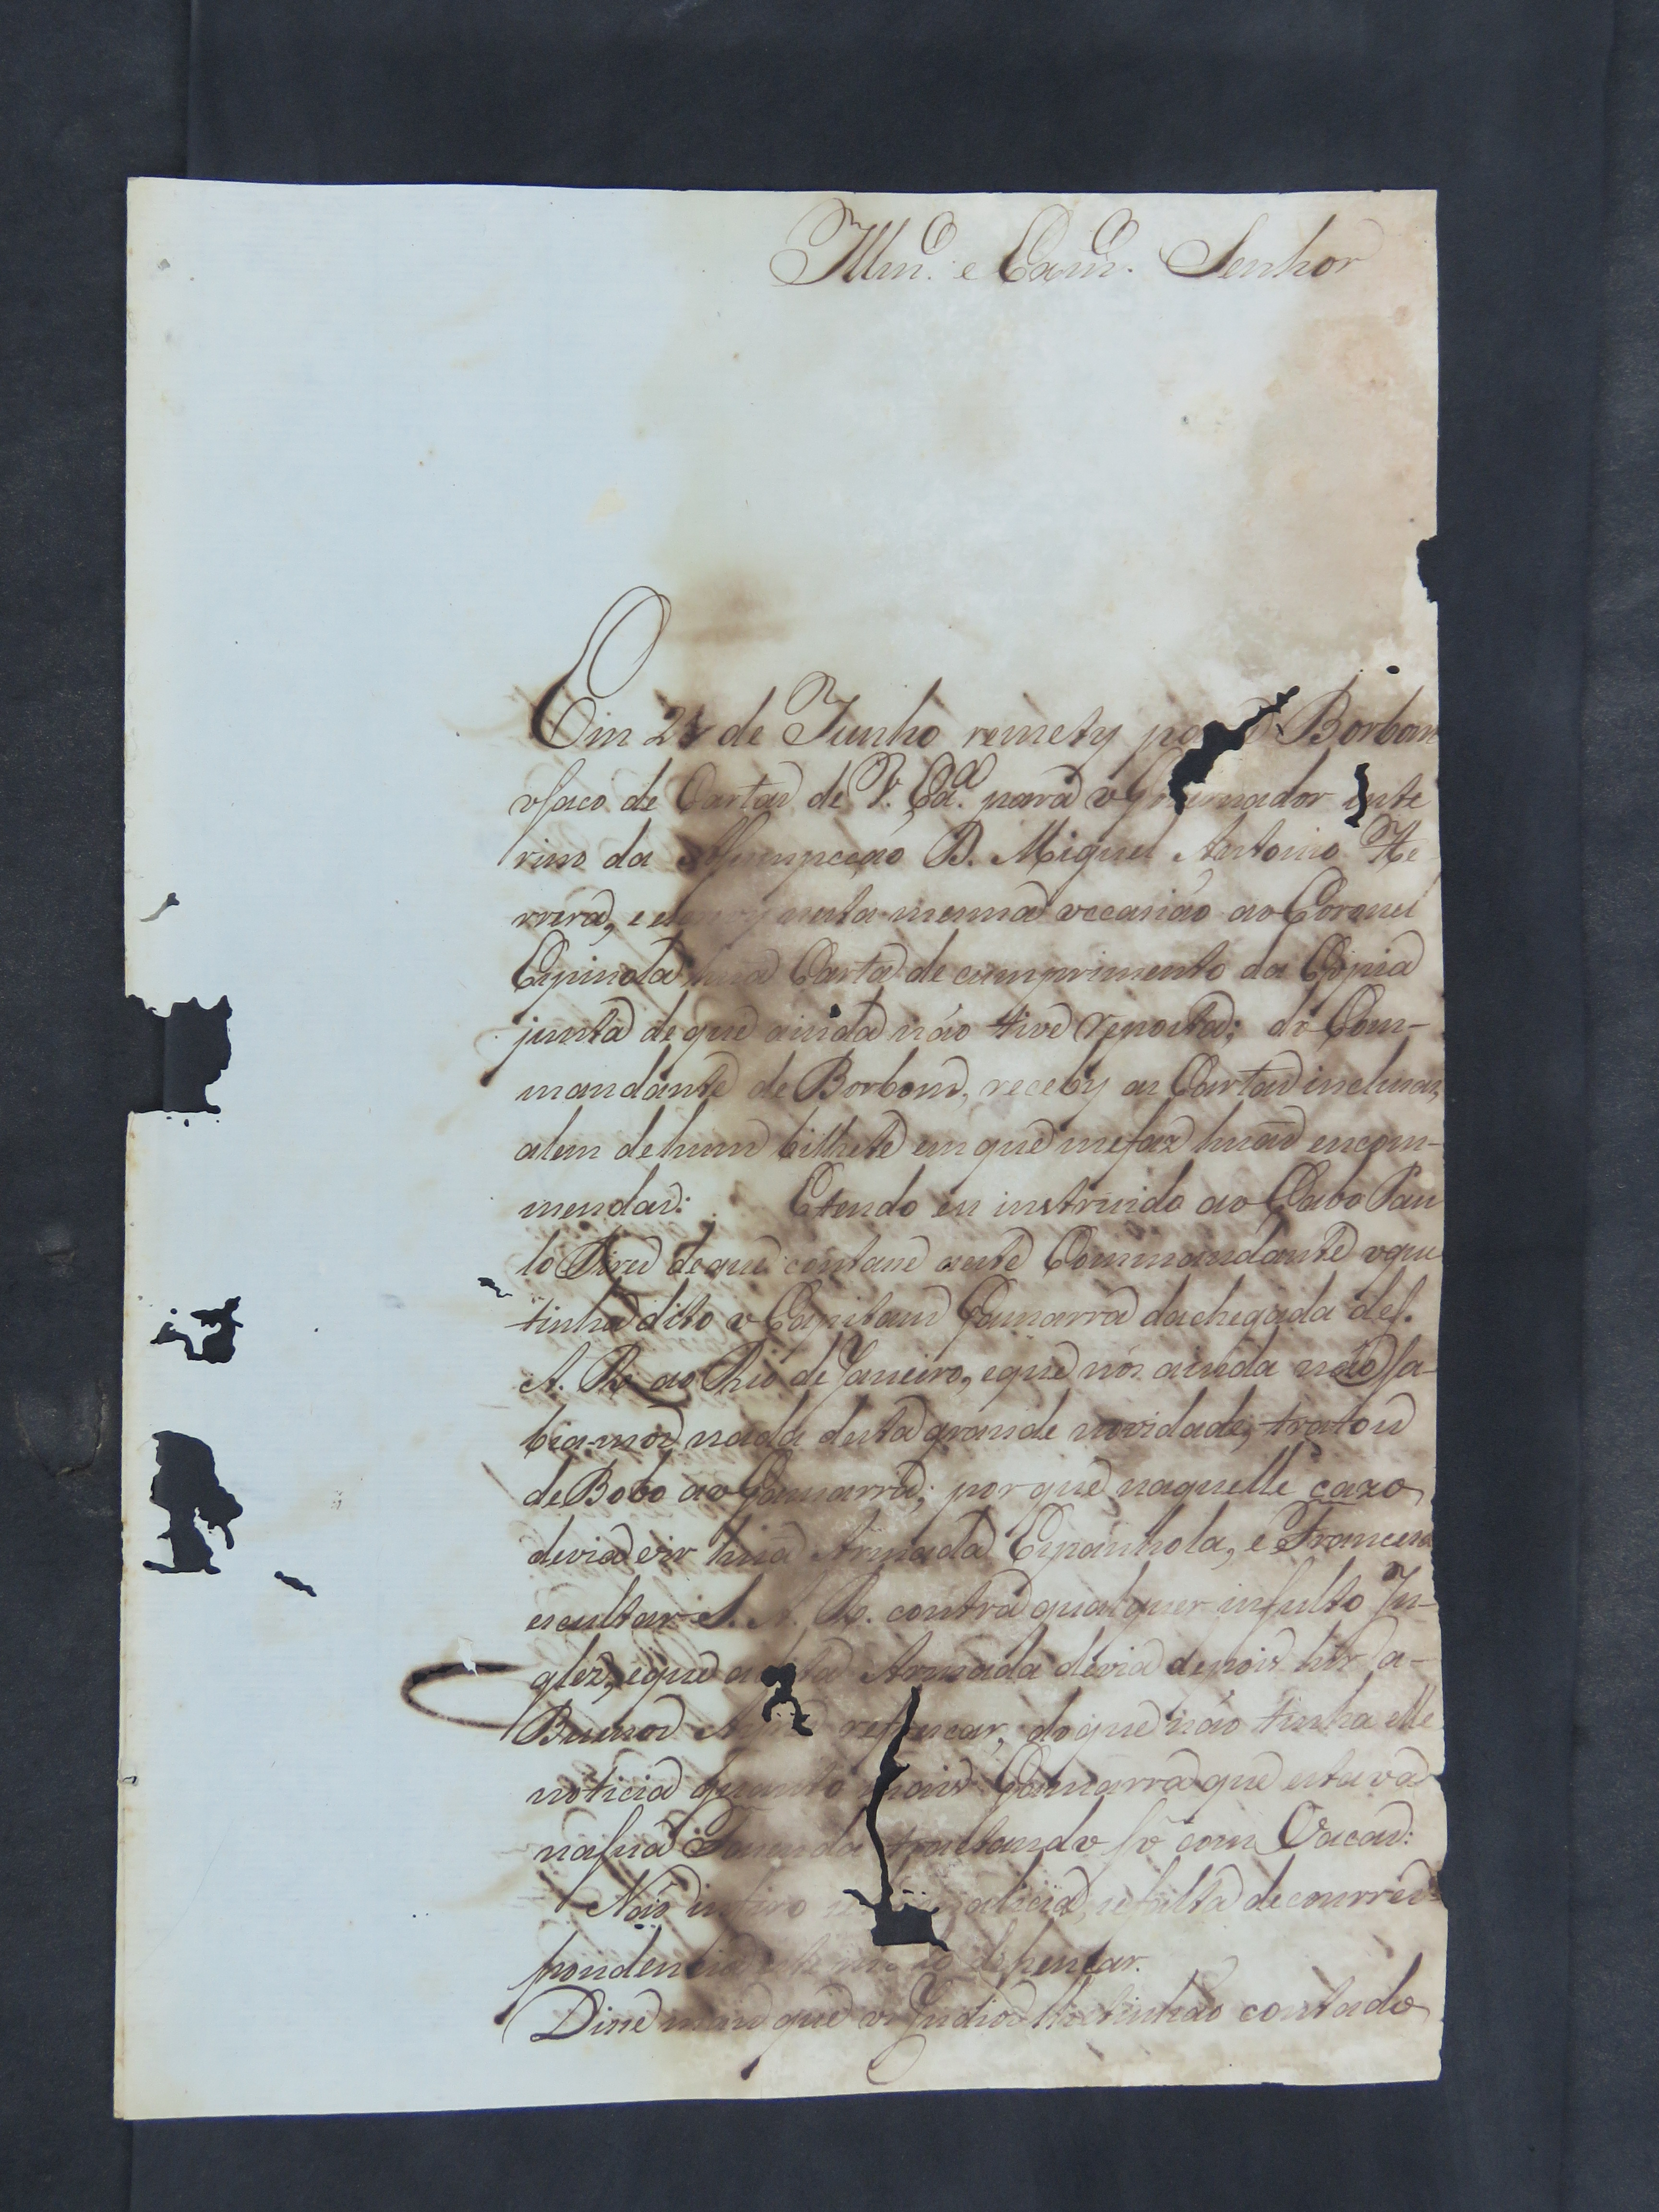 Illm.º e Exm.º Senhor
Em 24 de Junho remety para Borbon
o saco de Cartas de V. Ex.ª para o Governador Inte
rino da Assumpcção D. Miguel Antonio He
rrera, e nesta mesma occasião ao Coronel
Espinola huã Carta de cumprimento da Copia
junta de que ainda não tive reposta; do Com-
mandante de Borbon, receby as Cartas inclusas,
alem de hum bilhete em que me faz huãs encom-
mendas: E tendo eu instruido ao Cabo Pau
lo Pires de que contase a este Commandante o que
tinha dito o Capitam Gamarra da chegada de S.
A. R. ao Rio de Janeiro, e que nós ainda não sa-
bia-mos nada desta grande novidade, tratou
de Bobo ao Gamarra; por que naquelle cazo
devia vir huã Armada Espanhola, e Francesa
escultar S. A. R. contra qualquer insulto In-
glez, e que a Armada devia depois hir a
Buenos Ayres refrescar, do que não tinha elle
noticia quanto mais Gamarra que estava
na sua Fazenda tractando só com Vacas:
Não infiro se malicia, se falta de corres-
pondencia de pensar.
Disse mais que os Indios lhe tinhão contado